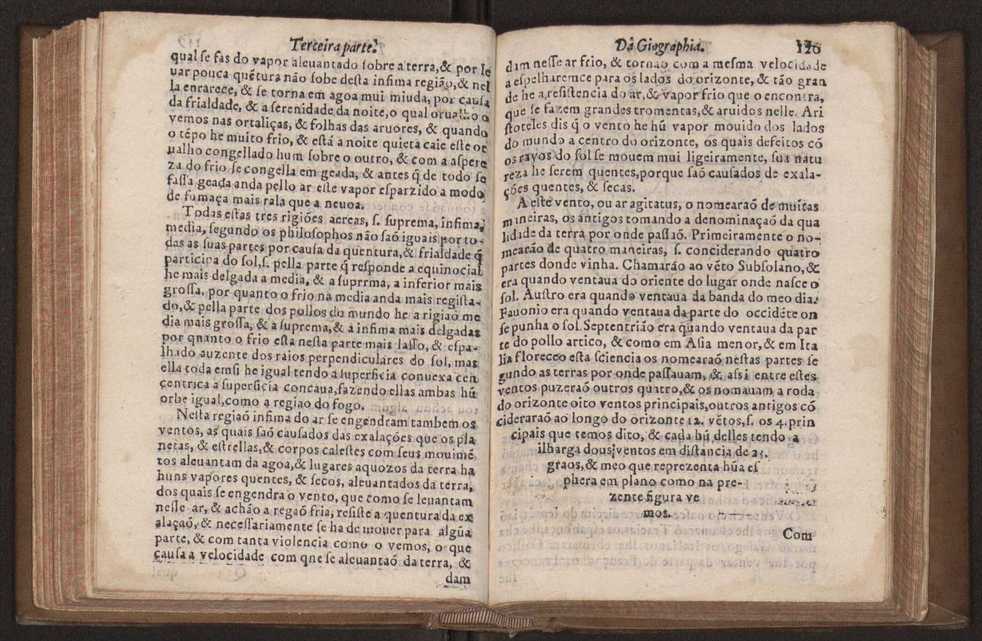 Terceira parte.
qual se fas do vapor aleuantado sobre a terra, & por le
uar pouca quẽtura não sobe desta infima região, & nel
la enrarece, & se torna em agoa mui miuda, por causa
da frialdade, & a serenidade da noite, o qual orualho o
vemos nas ortaliças, & folhas das aruores, & quando
o tẽpo he muito frio, & está a noite quieta caie este or
ualho congellado hum sobre o outro, & com a aspere
za do frio se congella em geada, & antes q̃ de todo se
fassa geada anda pello ar este vapor esparzido a modo
de fumaça mais rala que a neuoa.
Todas estas tres rigiões aereas, s. suprema, infima,
media, segundo os philosophos não saó iguais por to-
das as suas partes por causa da quentura, & frialdade q̃
participa do sol, s. pella parte q̃ responde a equinocial
he mais delgada a media, & a suprrma, a inferior mais
grossa, por quanto o frio na media anda mais regista-
do, & pella parte dos pollos do mundo he a rigiaó me
dia mais grossa, & a suprema, & a infima mais delgadas
por qnanto o frio està nesta parte mais lasso, & espa-
lhado auzente dos raios perpendiculares do sol, mas
ella toda emsi he igual tendo a superficia conuexa cen
çentrica à superficia concaua, fazendo ellas ambas hũ
orbe igual, como a regiao do fogo.
Nesta regiaó infima do ar se engendram tambem os
ventos, as quais saó causados das exalações que os pla
netas, & estrellas, & corpos calestes com seus mouimẽ
tos aleuantam da agoa, & lugares aquozos da terra ha
huns vapores quentes, & secos, aleuantados da terra,
dos quais se engendra o vento, que como se leuantam
nesse ar, & achão a regaó fria, resiste a quentura da ex
alaçaó, & necessariamente se ha de mouer para algũa
parte, & com tanta violencia como o vemos, o que
causa a velocidade com qne se aleuantaó da terra, &
dam
Dâ Giographia. 120
dam nesse ar frio, & tornão com a mesma velocidade
a espelharemce para os lados do orizonte, & tão gran
de he a resistencia do ar, & vapor frio que o encontra,
que se fazem grandes tromentas, & aruidos nelle. Ari
stoteles dis q̃ o vento he hũ vapor mouido dos lados
do mundo a centro do orizonte, os quais defeitos có
os rayos do sol se mouem mui ligeiramente, sua natu
reza he serem quentes, porque saó causados de exala-
ções quentes, & secas.
A este vento, ou ar agitatus, o nomearaó de muitas
mineiras, os antigos tomando a denominaçaó da qua
lidade da terra por onde passaó. Primeiramente o no-
mearão de quatro maneiras, s. conciderando quatro
partes donde vinha. Chamarão ao vẽto Subsolano, &
era quando ventaua do oriente do lugar onde nasce o
sol. Austro era quando ventaua da banda do meo dia.
Fauonio era quando ventaua da parte do occidẽte on
se punha o sol. Septentrião era quando ventaua da par
te do pollo artico, & como em Asia menor, & em Ita
lia floreceo esta sciencia os nomearaó nestas partes se
gundo as terras por onde passauam, & assi entre estes
ventos puzeraó outros quatro, & os nomauam a roda
do orizonte oito ventos principais, outros antigos có
cideraraó ao longo do orizonte 12. vẽtos, s. os 4. prin
cipais que temos dito, & cada hũ delles tendo a
ilharga dous ventos em distancia de 23.
graos, & meo que reprezenta hũa es
phera em plano como na pre-
zente figura ve
mos.
Com